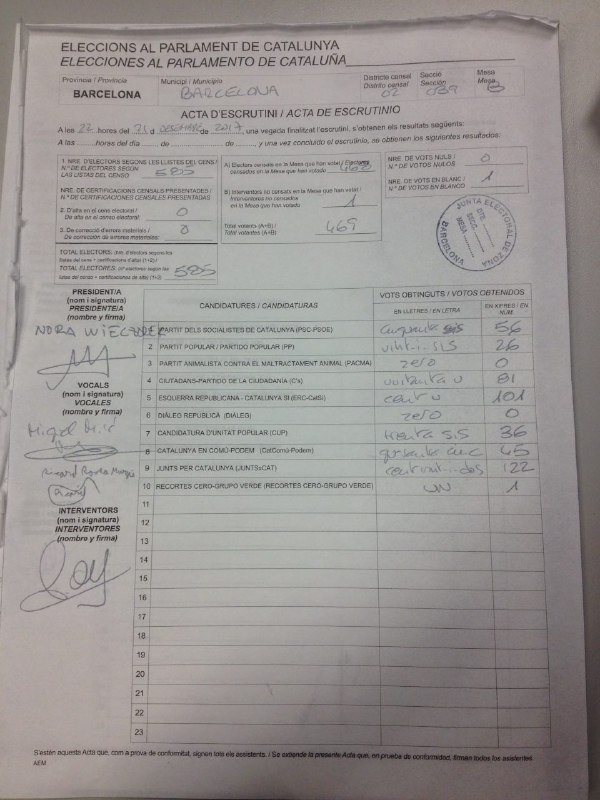 ELECCIONS AL PARLAMENT DE CATALUNYA
ELECCIONES AL PARLAMENTO DE CATALUÑA
Provincia / Provincia
BARCELONA
Municipi / Municipio
BARCELONA
Districte censal
Distrito censal
02
Secció
Sección
Mesa
Mesa
B
ACTA D'ESCRUTINI / ACTA DE ESCRUTINIO
A les 22 hores del 21 d DESEMBRE de 2017, una vegada finalitzat l'escrutini, s'obtenen els resultats següents:
A las ........horas del día ........ de ................ de ........, y una vez concluido el escrutinio, se obtienen los siguientes resultados:
1. NRE. D'ELECTORS SEGONS LES LLISTES DEL CENS /
N.º DE ELECTORES SEGÚN
LAS LISTAS DEL CENSO
585
NRE. DE CERTIFICACIONS CENSALS PRESENTADES /
N.º DE CERTIFICACIONES CENSALES PRESENTADAS
2. D'alta en el cens electoral /
De alta en el censo electoral:
0
3. De correcció d'errors materials /
De corrección de errores materiales:
0
TOTAL ELECTORS: (nre. d'electors segons les
llistes del cens + certificacions d'alta) (1+2) /
TOTAL ELECTORES: (nº electores según las
listas del censo + certificaciones de alta) (1+2)
585
A) Electors censats en la Mesa que han votat / Electores
censados en la Mesa que han votado
468
B) Interventors no censats en la Mesa que han votat /
Interventores no censados
en la Mesa que han votado
1
Total votants (A+B) /
Total votantes (A+B)
469
NRE. DE VOTS NULS /
N.º DE VOTOS NULOS
0
NRE. DE VOTS EN BLANC /
N.º DE VOTOS EN BLANCO
1
JUNTA ELECTORAL DE ZONA
BARCELONA
DTE.
SECC.
MESA
PRESIDENT/A
(nom i signatura)
PRESIDENTE/A
(nombre y firma)
NORA
VOCALS
(nom i signatura)
VOCALES
(nombre y firma)
INTERVENTORS
(nom i signatura)
INTERVENTORES
(nombre y firma)
CANDIDATURES / CANDIDATURAS
VOTS OBTINGUTS / VOTOS OBTENIDOS
EN LLETRES / EN LETRA
EN XIFRES / EN NUM.
1 PARTIT DELS SOCIALISTES DE CATALUNYA (PSC-PSOE) cinquanta sis 56
2 PARTIT POPULAR / PARTIDO POPULAR (PP) vint-i-sis 26
3 PARTIT ANIMALISTA CONTRA EL MALTRACTAMENT ANIMAL (PACMA) zero 0
4 CIUTADANS-PARTIDO DE LA CIUDADANÍA (C's) vuitanta u 81
5 ESQUERRA REPUBLICANA - CATALUNYA SÍ (ERC-CatSí) cent u 101
6 DIÀLEG REPUBLICÀ (DIÀLEG) zero 0
7 CANDIDATURA D'UNITAT POPULAR (CUP) trenta sis 36
8 CATALUNYA EN COMÚ-PODEM (CatComú-Podem) quaranta cinc 45
9 JUNTS PER CATALUNYA (JUNTSxCAT) cent vint-i-dos 122
10 RECORTES CERO-GRUPO VERDE (RECORTES CERO-GRUPO VERDE) UN 1
11
12
13
14
15
16
17
18
19
20
21
22
23
S'estén aquesta Acta que, com a prova de conformitat, signen tots els assistents. / Se extiende la presente Acta que, en prueba de conformidad, firman todos los asistentes.
AEM